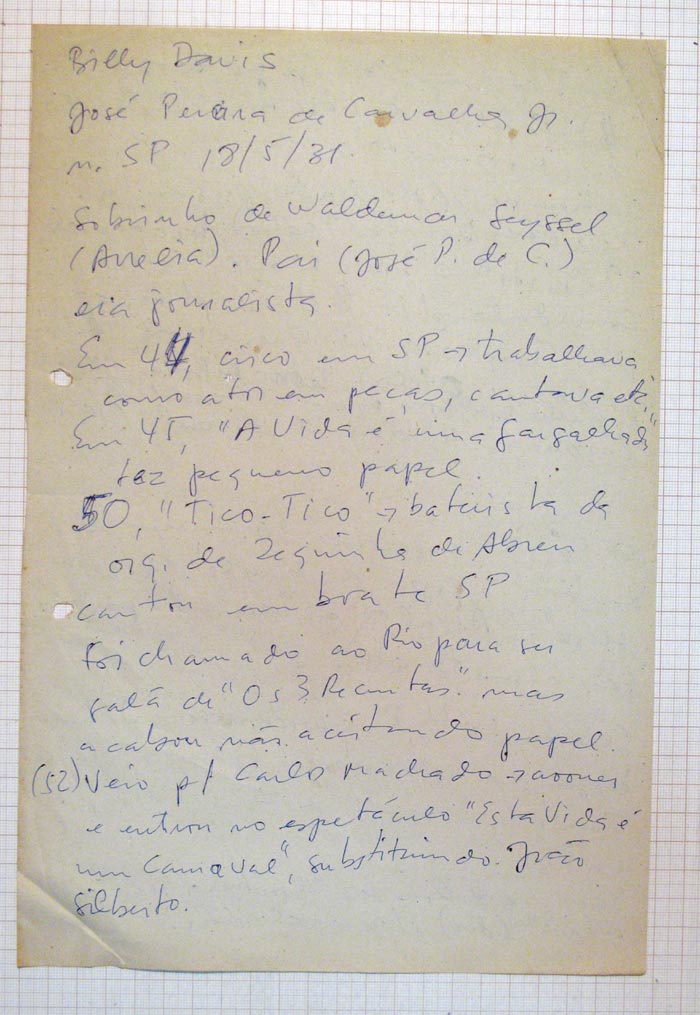 Billy Davis
José Pereira de Carvalho Jr.
n. SP 18/5/31.
Sobrinho de Waldemar Seyssel
(Arrelia). Pai (José P. de C.)
era jornalista.
Em 44, circo em SP → trabalhava
como ator em peças, cantava etc.
Em 45, "A Vida é uma Gargalhada"
fez pequeno papel.
50, "Tico-Tico" → baterista da
orq. de Zequinha de Abreu
cantou em boate SP
foi chamado ao Rio para ser
galã de "Os 3 Recrutas" mas
acabou não aceitando papel.
(52) Veio p/ Carlos Machado → crooner
e entrou no espetáculo "Esta Vida é
um Carnaval", substituindo João
Gilberto.